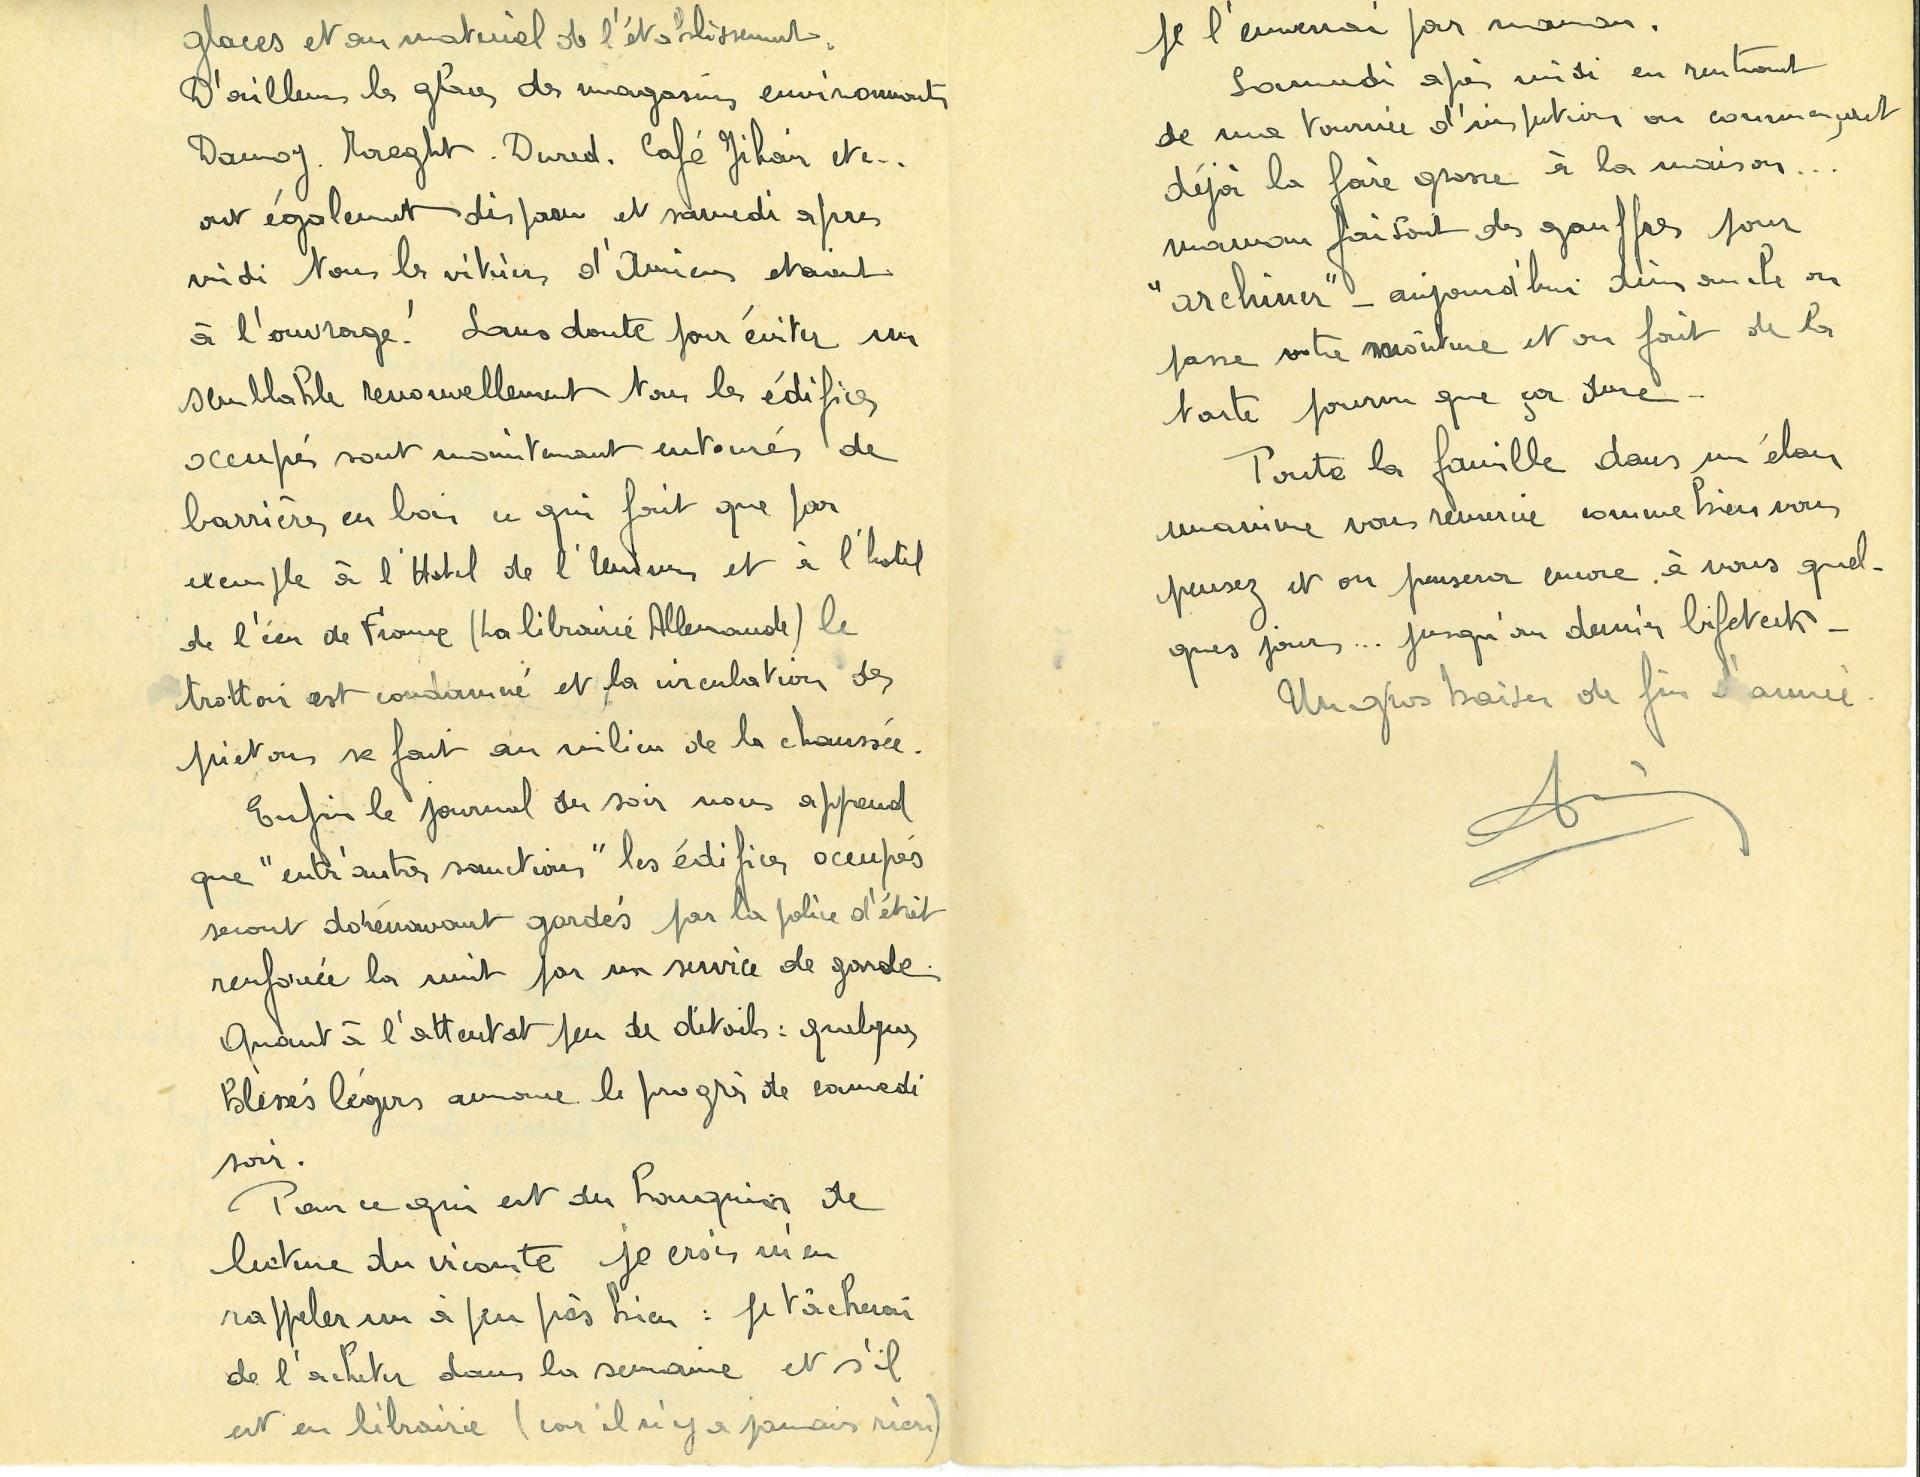 glaces et au matériel de l'établissement.
D'ailleurs les glaces des magasins environnants
Damoy. . Dured. Café Jihan etc...
ont également disparu et samedi apres
midi tous les vitriers d'Amiens etaient
à l'ouvrage! Sans doute pour éviter un
semblable renouvellement tous les édifices
occupés sont maintenant entourés de
barrières en bois ce qui fait que par
exemple à l'Hotel de l'Univers et à l'hotel
de l'écu de France (La librairie Allemande) le
trottoir est condamné et la circulation des
piétons se fait au milieu de la chaussée.
Enfin le journal du soir nous apprend
que "entr'autres sanctions" les édifices occupés
seront dorénavant gardés par la police d'état
renforcée la nuit par un service de garde.
Quant à l'attentat peu de détails : quelques
blessés légers annonce le progrès de samedi
soir.
Pour ce qui est du bouquin de
lecture du vicomte je crois m'en
rappeler un à peu près bien : je tâcherai
de l'acheter dans la semaine et s'il
est en librairie (car il n'y a jamais rien)
je l'enverrai par maman.
Samedi après midi en rentrant
de ma tournée d'inspection on commençait
déjà la foire grasse à la maison...
maman faisait des gauffres pour
"archiner" - aujourd'hui dimanche on
passe votre mouture et on fait de la
tarte pourvu que ça dure -
Toute la famille dans un élan
unanime vous remercie comme bien vous
pensez et on pensera encore à vous quel-
ques jours... jusqu'au dernier bifsteck -
Un gros baiser de fin d'année.